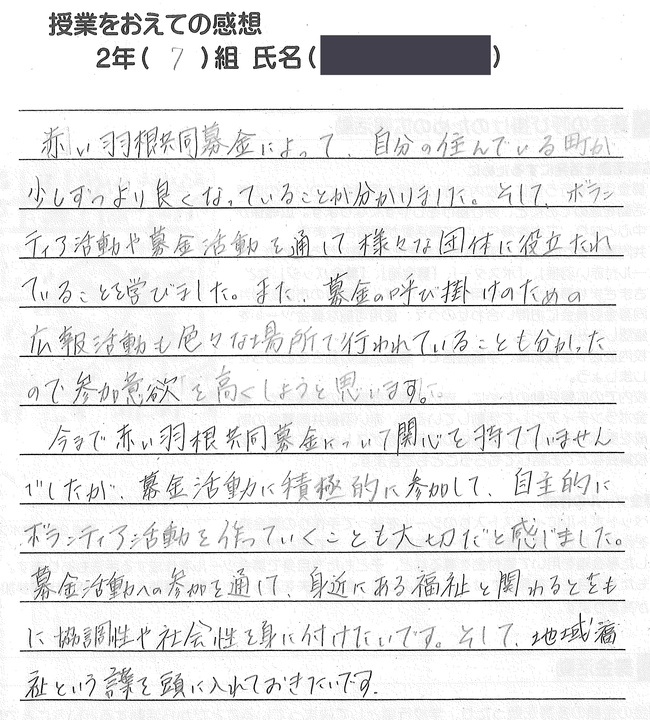 授業をおえての感想
2年( 7 )組 氏名( )
赤い羽根共同募金によって、自分の住んでいる町が
少しずつより良くなっていることが分かりました。そして、ボラン
ティア活動や募金活動を通して様々な団体に役立たれ
ていることを学びました。また、募金の呼び掛けのための
広報活動も色々な場所で行われていることも分かった
ので参加意欲を高くしようと思います。
今まで赤い羽根共同募金について関心を持てていません
でしたが、募金活動に積極的に参加して、自主的に
ボランティア活動を作っていくことも大切だと感じました。
募金活動への参加を通して、身近にある福祉と関わるとをも
に協調性や社会性を身に付けたいです。そして、地域福
祉という言葉を頭に入れておきたいです。